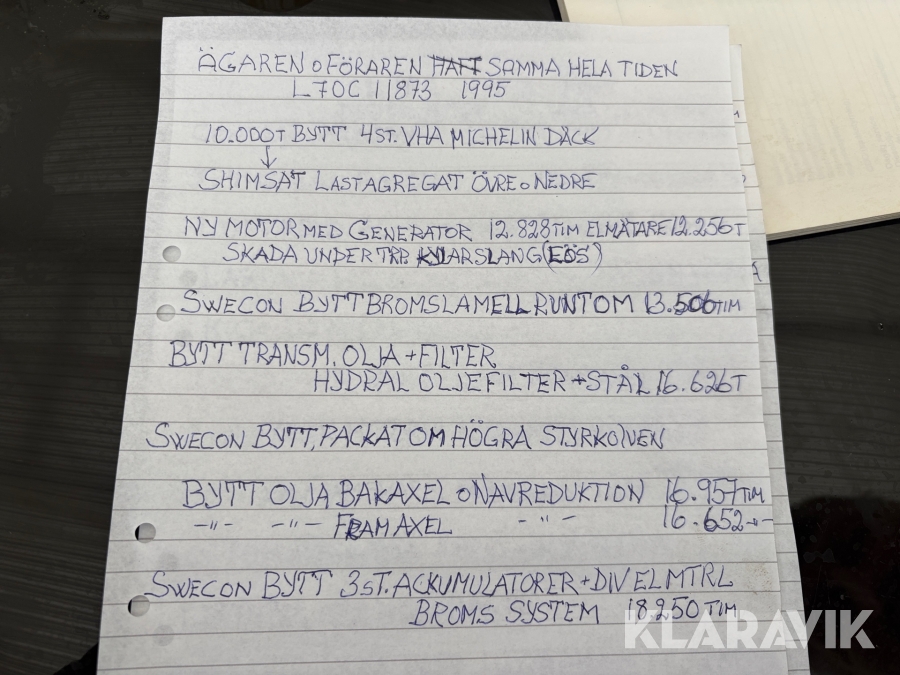 ÄGAREN o FÖRAREN HAFT SAMMA HELA TIDEN
L70C 11873 1995
10.000T BYTT 4ST. VHA MICHELIN DÄCK
↓
SHIMSAT LASTAGREGAT ÖVRE o NEDRE
NY MOTOR MED GENERATOR 12.828 TIM ELMÄTARE 12.256T
SKADA UNDER TRP. KYLARSLANG (EÖS)
SWECON BYTT BROMSLAMELL RUNTOM 13.506 TIM
BYTT TRANSM. OLJA + FILTER
HYDRAL OLJEFILTER + STÅL 16.626T
SWECON BYTT, PACKAT OM HÖGRA STYRKOLVEN
BYTT OLJA BAKAXEL o NAVREDUKTION 16.957 TIM
-"- -"- FRAMAXEL -"- 16.652 -"-
SWECON BYTT 3ST. ACKUMULATORER + DIV EL MTRL
BROMS SYSTEM 18250 TIM
KLARAVIK